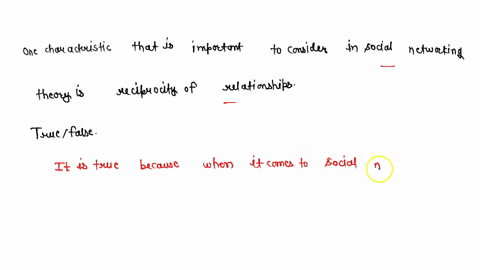 One characteristic that is important to consider in social networking
theory is reciprocity of relationships.
True/false.
It is true because when it comes to social n